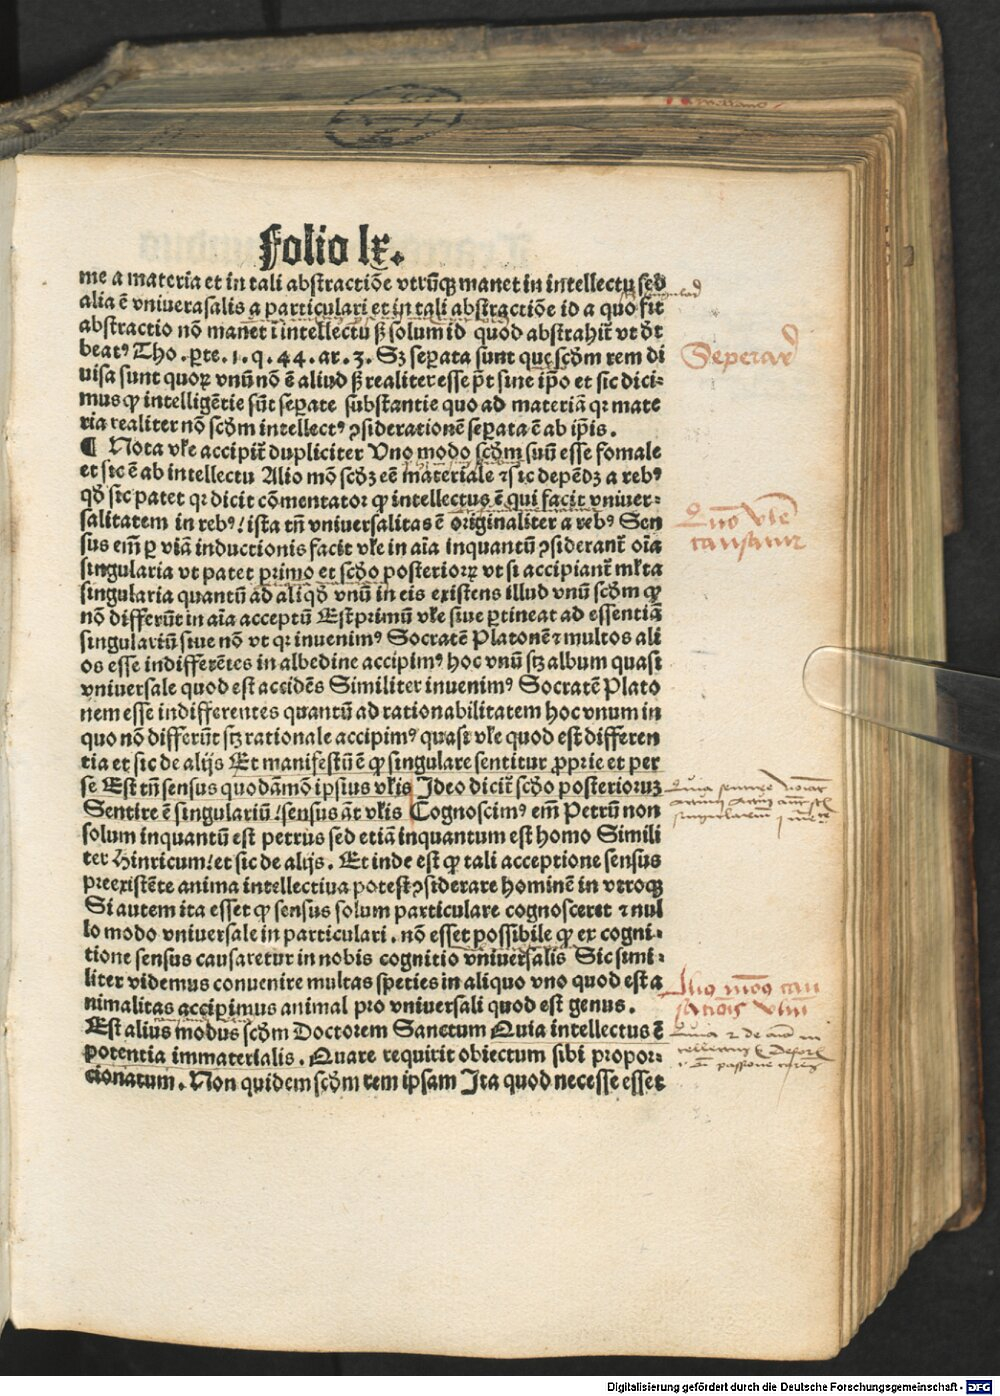 Folio lx.
me a materia et in tali abstractiōe vtrūq̄ manet in intellectu sed
alia ē vniuersalis a particulari et in tali abstractiōe id a quo fit
abstractio nō manet ī intellectu ß solum id quod abstrahit̄ vt dt
beatꝰ Tho . ꝑte . 1 . q . 44 . ar . 3 . Sꝫ seꝑata sunt que scd̄m rem di
uisa sunt quoꝝ vnū nō ē aliud ß realiter esse pt̄ sine ip̄o et sic dici⸗
mus ꝙ intelligētie sūt seꝑate substantie quo ad materiā qꝛ mate
ria realiter nō scd̄m intellectꝰ ꝯsiderationē seꝑata ē ab ip̄is .
¶ Nota vl̄e accipit̄ dupliciter Uno modo scd̄m suū esse fomale
et sic ē ab intellectu Alio mō scd̄ꝫ eē materiale ⁊ sic depēdꝫ a rebꝰ
qd̄ sic patet qꝛ dicit cōmentator ꝙ intellectus ē qui facit vniuer⸗
salitatem in rebꝰ / ista tn̄ vniuersalitas ē originaliter a rebꝰ Sen
sus em̄ ꝑ viā inductionis facit vl̄e in aīa inquantū ꝯsiderant̄ oīa
singularia vt patet primo et scd̄o posterioꝝ vt si accipiant̄ ml̄ta
singularia quantū ad aliqd̄ vnū in eis existens illud vnū scd̄m ꝙ
nō differūt in aīa acceptū Est primū vl̄e siue ꝑtineat ad essentiā
singulariū siue nō vt qꝛ inuenimꝰ Socratē Platonē ⁊ multos ali
os esse indifferētes in albedine accipimꝰ hoc vnū scꝫ album quasi
vniuersale quod est accidēs Similiter inuenimꝰ Socratē Plato
nem esse indifferentes quantū ad rationabilitatem hoc vnum in
quo nō differūt scꝫ rationale accipimꝰ quasi vl̄e quod est differen
tia et sic de alijs Et manifestū ē ꝙ singulare sentitur ꝓprie et per
se Est tn̄ sensus quodāmō ipsius vl̄is Ideo dicit̄ scd̄o posterioꝝ
Sentire ē singulariū / sensus āt vl̄is Cognoscimꝰ em̄ Petrū non
solum inquantū est petrus sed etiā inquantum est homo Simili
ter Hinricum / et sic de alijs . Et inde est ꝙ tali acceptione sensus
preexistēte anima intellectiua potest ꝯsiderare hominē in vtroqꝫ
Si autem ita esset ꝙ sensus solum particulare cognosceret ⁊ nul
lo modo vniuersale in particulari . nō esset possibile ꝙ ex cogni⸗
tione sensus causaretur in nobis cognitio vniuersalis Sic simi⸗
liter videmus conuenire multas species in aliquo vno quod est a
nimalitas accipimus animal pro vniuersali quod est genus .
Est alius modus scd̄m Doctorem Sanctum Quia intellectus ē
potentia immaterialis . Quare requirit obiectum sibi propor⸗
cionatum . Non quidem scd̄m rem ipsam Ita quod necesse esset
Seperar̄
Quō vl̄e
causatur
Aliꝰ modꝰ cau
sationis vl̄iū
Digitalisierung gefördert durch die Deutsche Forschungsgemeinschaft - DFG